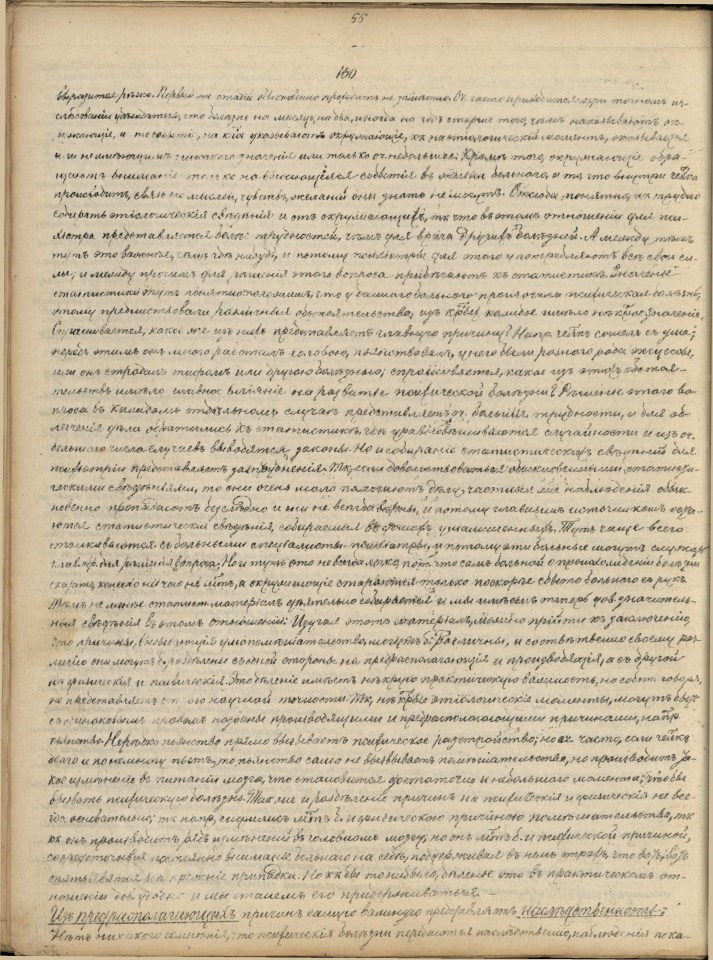 55
150
выразится резко. Первый же стадій обыкновенно проходитъ не замѣтно. Оч. часто приходится при точномъ из-
слѣдованіи убѣждаться, что болѣзнь на мѣсяцъ, на два, иногда на годъ старше того, чѣмъ насчитываютъ ок-
ружающіе, и то событіе, на кое указываютъ окружающіе, кк на этіологическій моментъ, оказывается
и не имѣющимъ никакого значенія или только очень небольшое. Кромѣ того, окружающіе обра-
щаютъ вниманіе только на выдающіяся событія въ жизни больного, а то, что внутри его
происходитъ, связь ихъ мыслей, чувствъ, желаній они знать не могутъ. Отсюда понятно, кк трудно
собирать этіологическія свѣдѣнія и отъ окружающихъ, тк что въ этомъ отношеніи для пси-
хіатра представляется больше трудностей, чѣмъ для врача другихъ болѣзней. А между тѣмъ
тутъ это важнѣе, чѣмъ гдѣ нибудь, и потому психіатры для этого употребляютъ всѣ свои си-
лы, и между прочимъ для рѣшенія этого вопроса прибѣгаютъ къ статистикѣ. Значеніе
статистики тутъ понятно: положимъ, что у даннаго больного произошла психическая болѣзнь,
этому предшествовали различныя обстоятельства, изъ кѣхъ каждое имѣло нѣкрое значеніе.
Спрашивается, какое же изъ нихъ представляетъ главную причину? Напр. челкъ сошелъ съ ума;
передъ этимъ онъ много работалъ головою, пьянствовалъ, у него были разного рода эксцессы,
или онъ страдалъ тифомъ или другою болѣзнью; спрашивается, какое изъ этихъ обстоя-
тельствъ имѣло главное вліяніе на развитіе психической болѣзни? Рѣшеніе этого во-
проса въ каждомъ отдѣльномъ случаѣ представляетъ оч. большія трудности, и для об-
легченія дѣла обратились къ статистикѣ, гдѣ уравновѣшиваются случайности и изъ от-
дѣльнаго числа случаевъ выводятся законы. Но и собираніе статистическихъ свѣдѣній для
психіатріи представляетъ затрудненія. Тк, если довольствоваться обыкновенными статисти-
ческими свѣдѣніями, то они очень мало помогаютъ дѣлу, частныя же наблюденія обык-
новенно пропадаютъ безслѣдно и они не всегда вѣрны, и потому главнымъ источникомъ оказы-
ваются статистическія свѣдѣнія, собираемыя въ домахъ умалишенныхъ. Тутъ чаще всего
сталкиваются съ больными спеціалисты-психіатры, и потому эти больные могутъ служить
главн. обр. для рѣшенія вопроса. Но и тутъ это не всегда легко, пот. что самъ больной о происхожденіи болѣзни
сказать, конечно ничего не мжтъ, а окружающіе стараются только поскорѣе сбыть больного съ рукъ.
Тѣмъ не менѣе статист. матеріалъ дѣятельно собирается и мы имѣемъ теперь уже значитель-
ныя свѣдѣнія въ этомъ отношеніи. Изучая этотъ матеріалъ, можно прійти къ заключенію,
что причины, вызывающія умопомѣшательство, могутъ б. различны, и соотвѣтственно своему раз-
личію они могутъ б. раздѣлены съ одной стороны на предрасполагающія и производящія, а съ другой
на физическія и психическія. Это дѣленіе имѣетъ нѣкрую практическую важность, но собств. говоря,
не представляетъ строго научной точности. Тк, нѣкрые этіологическіе моменты, могутъ быть
съ одинаковымъ правомъ названы производящими и предрасполагающими причинами, напр.
пьянство. Нерѣдко пьянство прямо вызываетъ психическое разстройство; но оч. часто, если челкъ
долго и понемногу пьетъ, то пьянство само не вызываетъ помѣшательства, но производитъ та-
кое измѣненіе въ питаніи мозга, что становится достаточно и небольшого момента, чтобы
вызвать психическую болѣзнь. Также и раздѣленіе причинъ на психическія и физическія не все-
гда основательно; тк напр. сифилисъ мжтъ б. и физическою причиною помѣшательства, тк
кк онъ производитъ рядъ измѣненій въ головномъ мозгу, но онъ мжтъ б. и психической причиной,
сосредоточивая постоянно вниманіе больнаго на себѣ, поддерживая въ немъ страхъ, что вотъ, вотъ
опять явятся все прежніе припадки. Но кк бы то ни было, дѣленіе это въ практическомъ от-
ношеніи все удобно и мы станемъ его придерживаться.
Изъ предрасполагающихъ причинъ самую важную представляетъ наслѣдственность.
Нѣтъ никакого сомнѣнія, что психическія болѣзни передаются наслѣдственно, наблюденія пока-